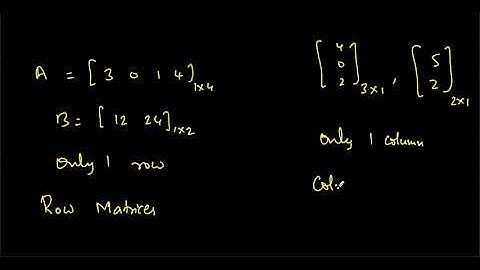 A = [ 3 0 1 4 ]1×4
B = [ 12 24 ]1×2
Only 1 row
Row Matrices
[ 4
0
2 ]3×1 , [ 5
2 ]2×1
Only 1 column
Col